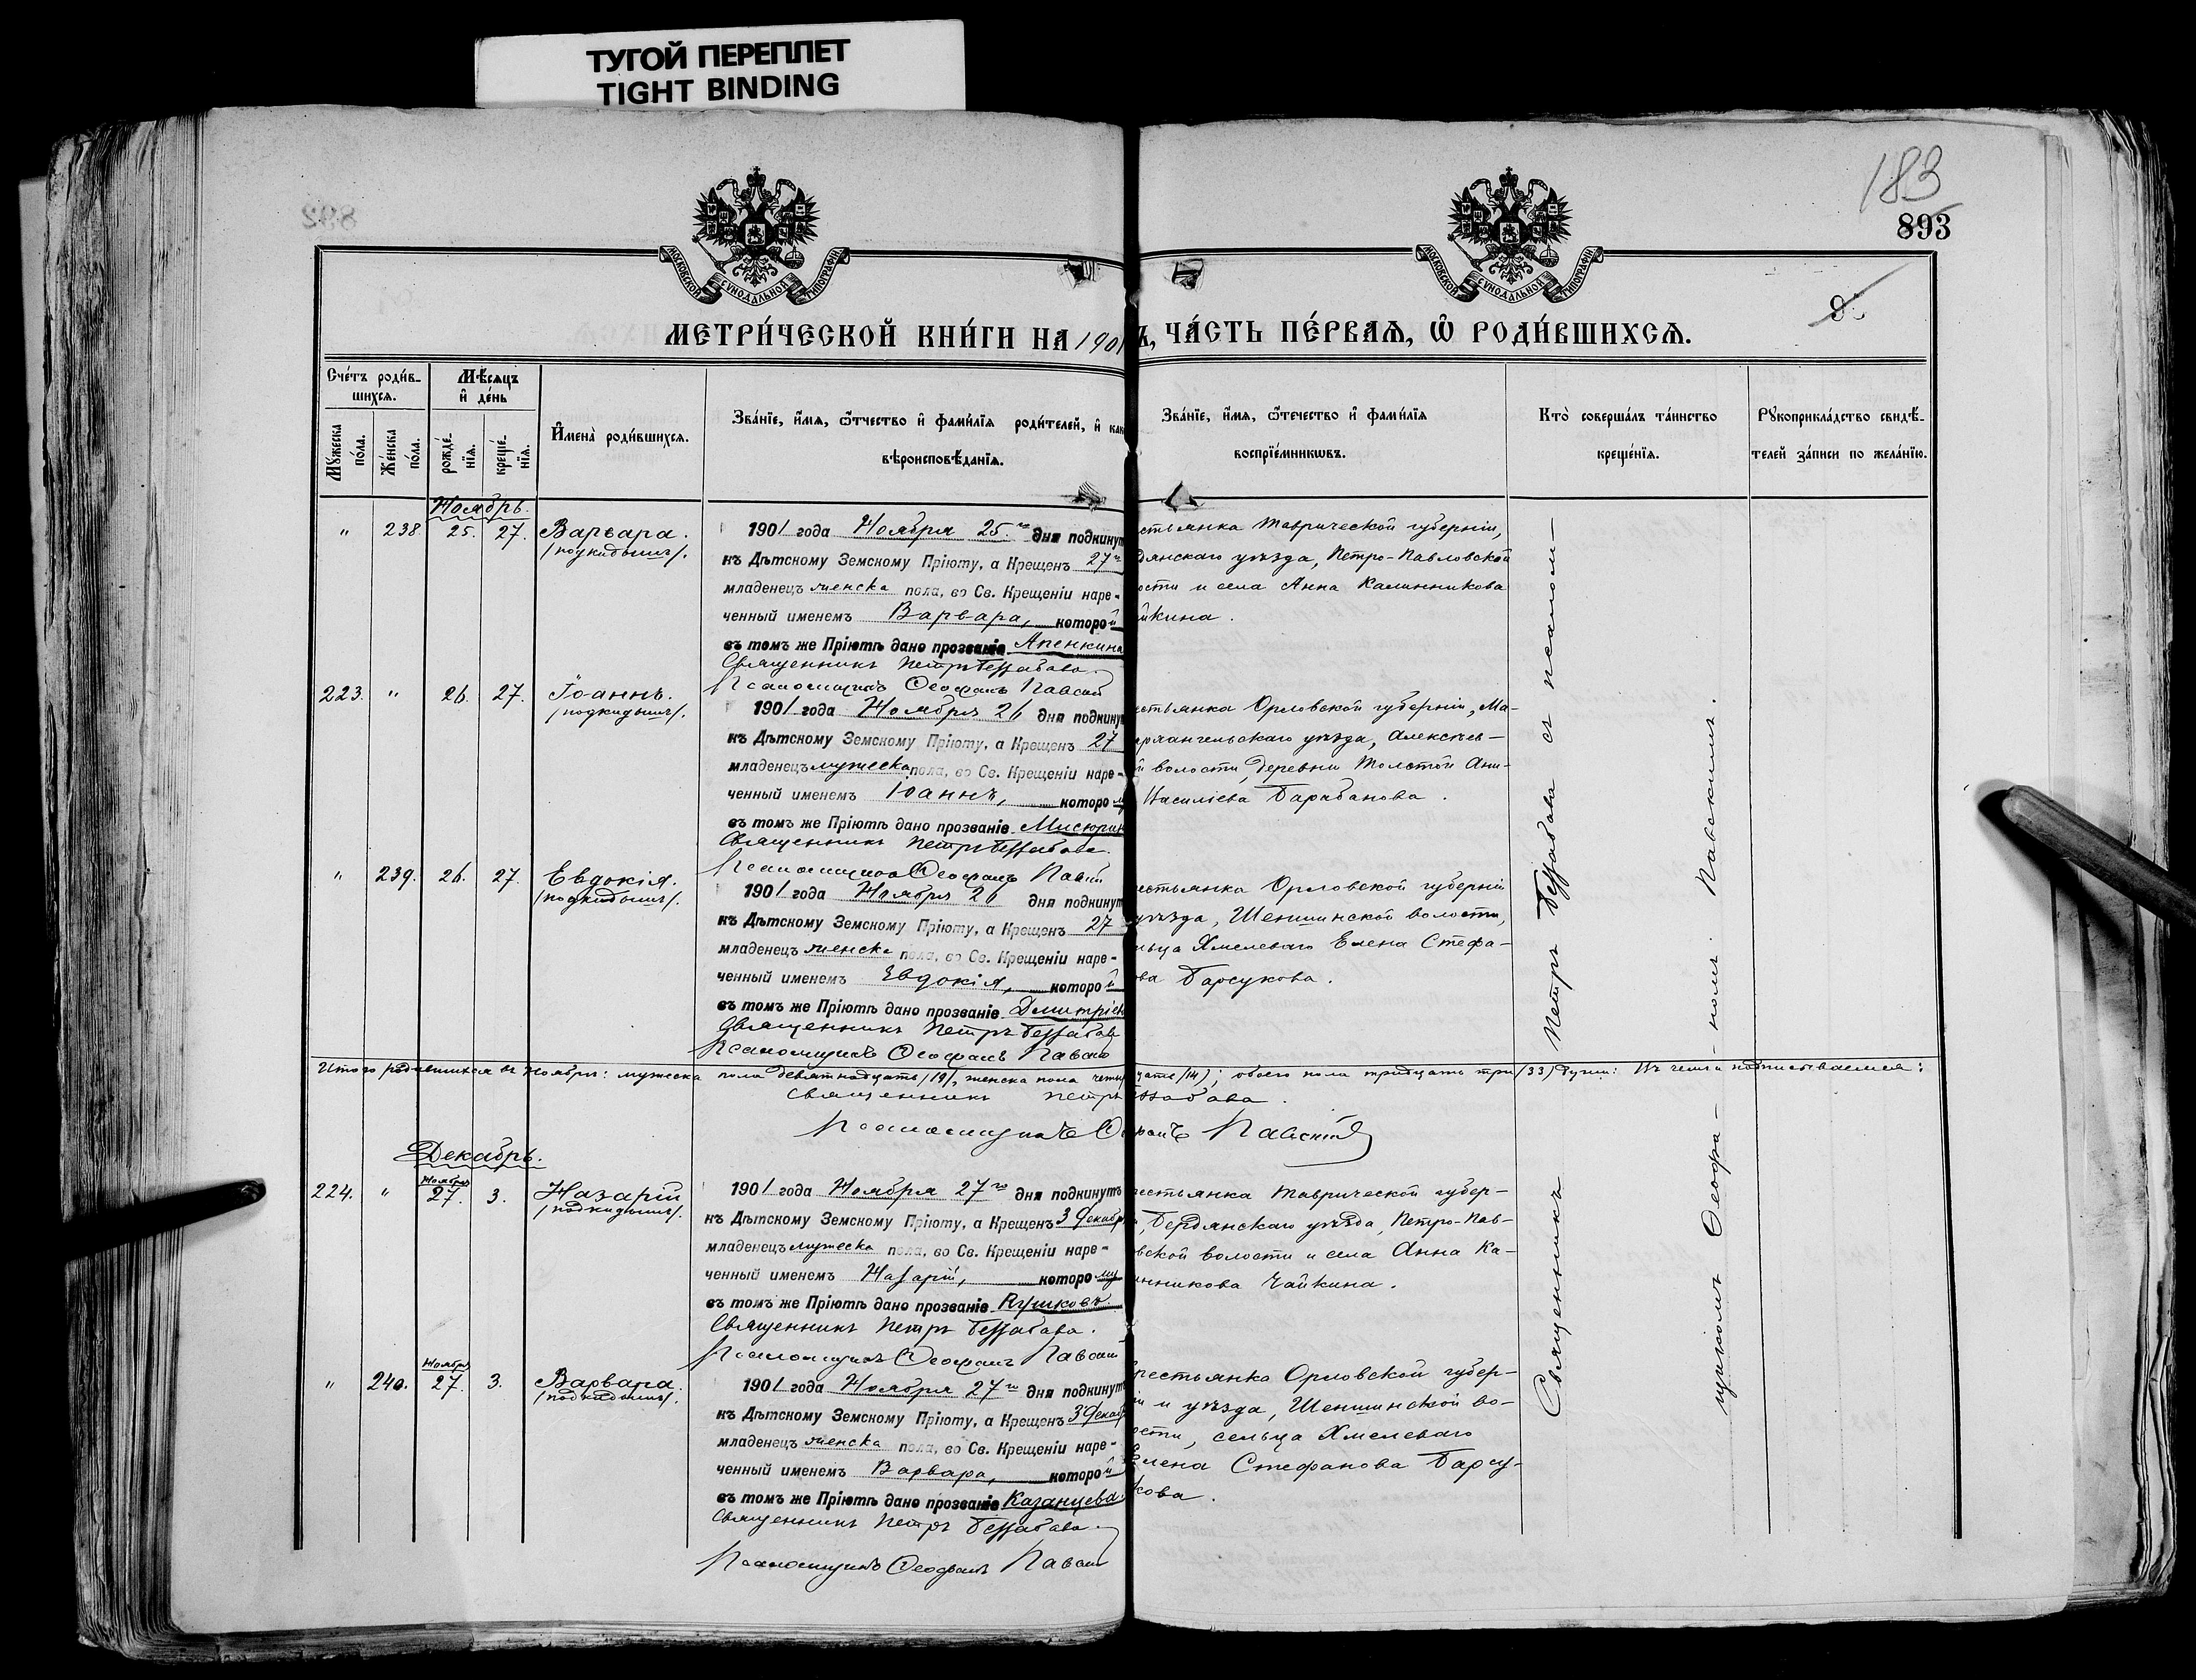 ТУГОЙ ПЕРЕПЛЕТ
TIGHT BINDING
183
893
МОСКОВСКОЙ СѴНОДАЛЬНОЙ ТИПОГРАФІИ
МОСКОВСКОЙ СѴНОДАЛЬНОЙ ТИПОГРАФІИ
МЕТРИ́ЧЕСКОЙ КНИ́ГИ НА 1901
Ъ, ЧА́СТЬ ПЕ́РВАѦ, Ѡ҆ РОДИ́ВШИХСѦ.
Счéтъ роди́в-
шихсѧ.
Мꙋ́жеска по́ла.
Же́нска по́ла.
Мѣ́сѧцъ
и҆ де́нь
рожде́-нїѧ.
креще́-нїѧ.
И҆мена̀ роди́вшихсѧ.
Зва́нїе, и҆́мѧ, ѻ҆́тчество и҆ фами́лїѧ роди́телей, и҆ как
вѣроисповѣ́данїѧ.
Зва́нїе, и҆́мѧ, ѻ҆те́чество и҆ фами́лїѧ
воспрїе́мникωвъ.
Кто̀ соверша́лъ та́инство
креще́нїѧ.
Рꙋкоприкла́дство свидѣ́-
телей за́писи по жела́нїю.
Ноябрь.
" 238. 25. 27. Варвара.
/подкидышъ/.
1901 года Ноября 25го дня подкинут
къ Дѣтскому Земскому Пріюту, а Крещенъ 27го
младенецъ женска пола, во Св. Крещеніи наре-
ченный именемъ Варвара, которой
въ томъ же Пріютѣ дано прозваніе Апенкина
Священникъ Петръ Беззабава.
Псаломщикъ Ѳеофанъ Павскій
стьянка Таврической губерніи,
дянскаго уѣзда, Петро-Павловской
ости и села Анна Калинникова
йкина.
223. " 26. 27. Іоаннъ.
/подкидышъ/.
1901 года Ноября 26 дня подкинут
къ Дѣтскому Земскому Пріюту, а Крещенъ 27
младенецъ мужеска пола, во Св. Крещеніи наре-
ченный именемъ Іоаннъ, которому
въ томъ же Пріютѣ дано прозваніе Мисюрин
Священникъ Петръ Беззабава.
Псаломщикъ Ѳеофанъ Павскій
стьянка Орловской губерніи, Ма-
архангельскаго уѣзда, Алексѣев-
й волости, деревни Толстой Ани-
Василіева Барабанова.
" 239. 26. 27. Евдокія.
/подкидышъ/.
1901 года Ноября 26 дня подкинут
къ Дѣтскому Земскому Пріюту, а Крещенъ 27
младенецъ женска пола, во Св. Крещеніи наре-
ченный именемъ Евдокія, которой
въ томъ же Пріютѣ дано прозваніе Дмитріев
Священникъ Петръ Беззабава
Псаломщикъ Ѳеофанъ Павскій
естьянка Орловской губерніи
уѣзда, Шеншинской волости,
льца Хмелеваго Елена Стефа-
ова Барсукова.
Итого родившихся въ Ноябрѣ: мужеска пола девятнадцать /19/, женска пола четыр
цать /14/; обоего пола тридцать три /33/ души: Въ чемъ и подписываемся:
Священникъ Петръ
ззабава.
Псаломщикъ Ѳеофанъ Павскій
Декабрь.
224. " Ноября 27. 3. Назарій
/подкидышъ/.
1901 года Ноября 27го дня подкинутъ
къ Дѣтскому Земскому Пріюту, а Крещенъ 3 Декабр
младенецъ мужеска пола, во Св. Крещеніи наре-
ченный именемъ Назарій, которому
въ томъ же Пріютѣ дано прозваніе Пушковъ.
Священникъ Петръ Беззабава.
Псаломщикъ Ѳеофанъ Павскій
естьянка Таврической губер-
, Бердянскаго уѣзда, Петро-Пав-
вской волости и села Анна Ка-
инникова Чайкина.
" 240. Ноября 27. 3. Варвара.
/подкидышъ/.
1901 года Ноября 27го дня подкинут
къ Дѣтскому Земскому Пріюту, а Крещенъ 3 Декаб
младенецъ женска пола, во Св. Крещеніи наре-
ченный именемъ Варвара, которой
въ томъ же Пріютѣ дано прозваніе Казанцева.
Священникъ Петръ Беззабава.
Псаломщикъ Ѳеофанъ Павскій
рестьянка Орловской губер-
іи и уѣзда, Шеншинской во-
ости, сельца Хмелеваго
Елена Стефанова Барсу-
кова.
Священникъ Петръ Беззабава съ псалом-
щикомъ Ѳеофа-номъ Павскимъ.